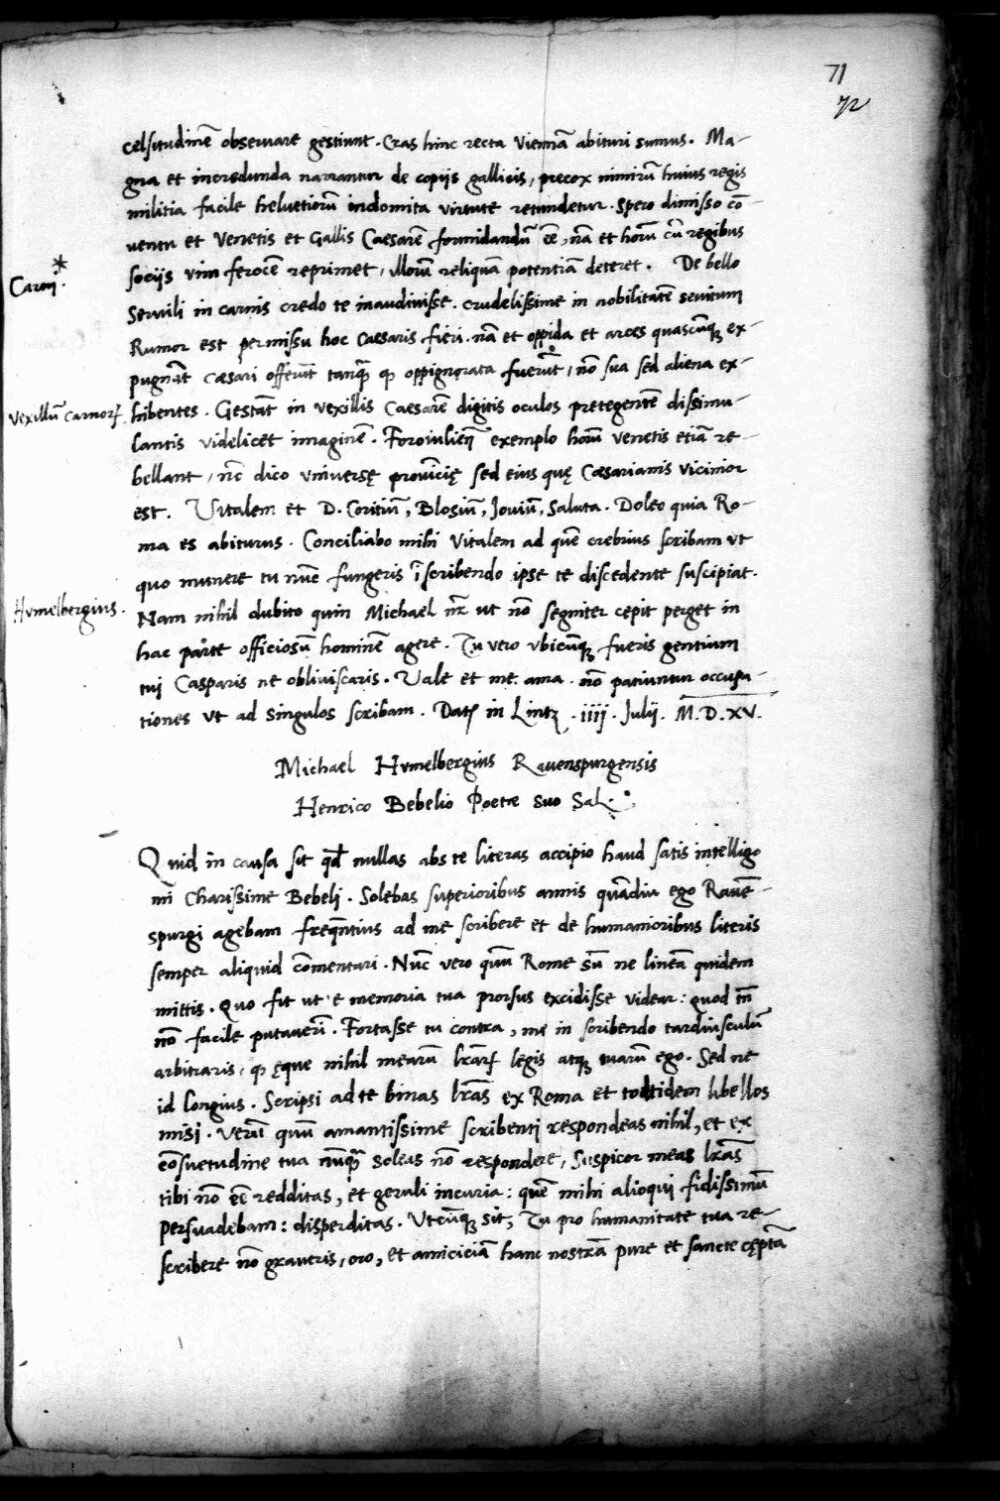 71
72
celsitudinẽ obseruare gestiunt. Cras hinc recta Viennã abituri sumus. Ma-
gna et incredunda narrantur de copijs gallicis, precox nimirũ huius regis
militia facile heluetiorũ indomita virtute retundetur. Spero dimisso cõ-
uentu et Venetis et Gallis Caesarẽ formidandũ eẽ, nã et horũ cũ regibus
socijs vim ferocẽ reprimet, illorũ reliquã potentiã deteret. De bello
* Carni.
Seruili in carnis credo te inaudiuisse. crudelissime in nobilitatẽ seuitum
Rumor est permissu hoc Caesaris fieri. nã et oppida et arces quascũq; ex-
pugnãt caesari offerũt tanq̃ q oppignorata fuerũt, nõ sua sed aliena ex-
Vexillũ Carnorꝝ.
hibentes. Gestãt in vexillis Caesarẽ digitis oculos pretegentẽ dissimu-
lantis videlicet imaginẽ. Foroiulienẽ exemplo horũ venetis etiã re-
bellant, nec dico vniuersę prouincię sed eius quę Caesarianis vicinior
est. Vitalem et D. Coritiũ, Blosiũ, Jouiũ, Saluta. Doleo quia Ro-
ma es abiturus. Conciliabo mihi Vitalem ad quẽ crebrius scribam vt
quo munere tu nũc fungeris ĩ scribendo ipse te discedente suscipiat.
Hvmelbergius.
Nam nihil dubito quin Michael nr̃ ut nõ segniter cępit perget in
hac parte officiosũ hominẽ agere. Tu vero vbicũq; fueris gentium
tui Casparis ne obliuiscaris. Vale et me ama. nõ patiuntur occupa-
tiones vt ad singulos scribam. Datꝝ in Lintz .iiij. Julij. M.D.XV.
Michael Hvmelbergius Rauenspurgensis
Henrico Bebelio Poetae suo Sal.
Quid in causa sit qd̃ nullas abs te literas accipio haud satis intelligo
mi Charissime Bebeli. Solebas superioribus annis quãdiu ego Rauẽ-
spurgi agebam freq̃ntius ad me scribere et de humanioribus literis
semper aliquid cõmentari. Nũc vero quũ Rome sũ ne lineã quidem
mittis. Quo fit ut e memoria tua prorsus excidisse videar: quod tñ
nõ facile putauerĩ. Fortasse tu contra, me in scribendo tardiusculũ
arbitraris, q ęque nihil mearũ lr̃arꝝ legis atq; tuarũ ego. Sed ne
id longius. Scripsi ad te binas lr̃as ex Roma et totidem libellos
misi. Verũ quũ amantissime scribenti respondeas nihil, et ex
cõsuetudine tua nũq̃ soleas nõ respondere, Suspicor meas lr̃as
tibi nõ eẽ redditas, et geruli incuria: quẽ mihi alioqui fidissimũ
persuadebam: disperditas. Vtcũq; sit, Tu pro humanitate tua re-
scribere nõ graueris, oro, et amiciciã hanc nostrã pure et sancte cęptã